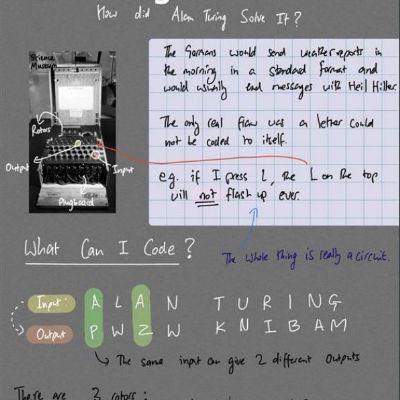 How did Alan Turing Solve It?
Science
Museum
Rotors
Output
Input
Plugboard
The Germans would send weather reports in
the morning in a standard format and
would usually end messages with Heil Hitler.
The only real flaw was a letter could
not be coded to itself.
e.g. if I press L, the L on the top
will not flash up ever.
The whole thing is really a circuit.
What Can I Code?
Input: A L A N T U R I N G
Output P W Z W K N I B A M
The same input can give 2 different outputs
There are 3 rotors: